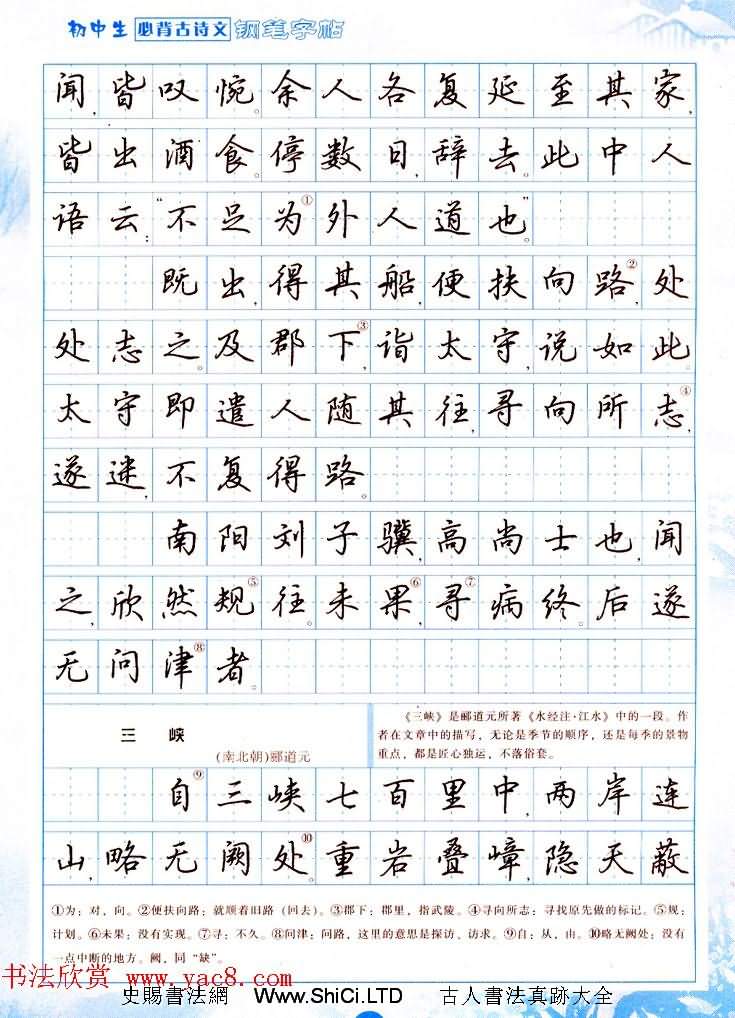 初中生 必背古诗文 钢笔字帖
闻，皆叹惋。余人各复延至其家，
皆出酒食。停数日，辞去。此中人
语云：“不足为①外人道也”。
既出，得其船，便扶向路②，处
处志之。及郡下③，诣太守，说如此。
太守即遣人随其往，寻向所志④，
遂迷，不复得路。
南阳刘子骥，高尚士也，闻
之，欣然规⑤往。未果⑥，寻⑦病终。后遂
无问津⑧者。
三 峡
(南北朝)郦道元
《三峡》是郦道元所著《水经注·江水》中的一段。作
者在文章中的描写，无论是季节的顺序，还是每季的景物
重点，都是匠心独运，不落俗套。
自⑨三峡七百里中，两岸连
山，略无阙处⑩。重岩叠嶂，隐天蔽
①为：对，向。②便扶向路：就顺着旧路（回去）。③郡下：郡里，指武陵。④寻向所志：寻找原先做的标记。⑤规：
计划。⑥未果：没有实现。⑦寻：不久。⑧问津：问路，这里的意思是探访、访求。⑨自：从，由。⑩略无阙处：没有
一点中断的地方。阙，同“缺”。
书法欣赏 www.yac8.com
史賜書法網 Www.ShiCi.LTD 古人書法真跡大全